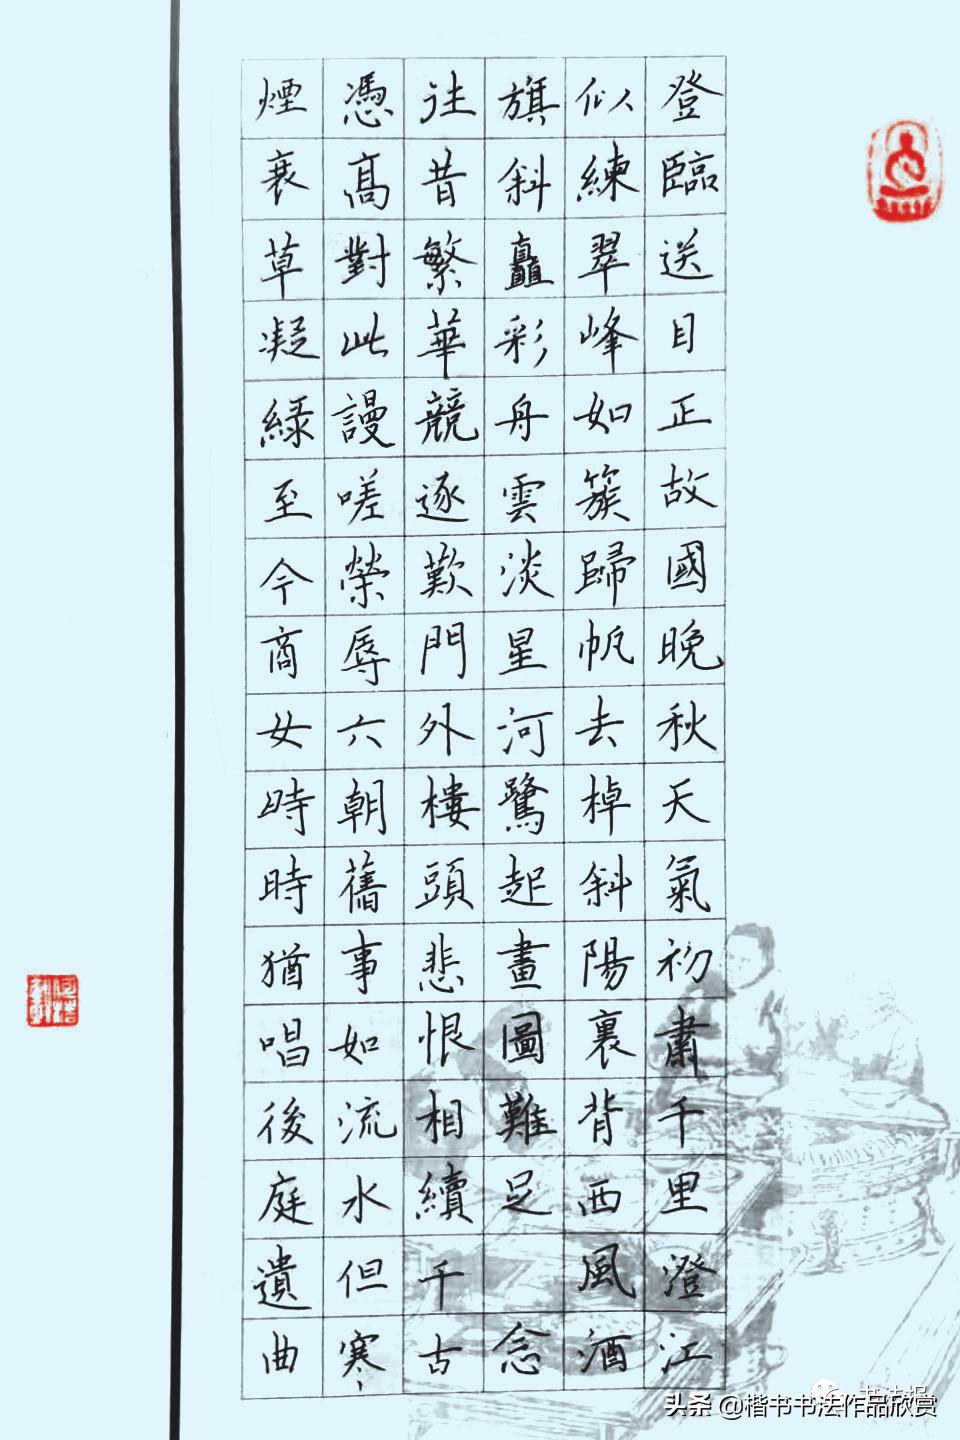 登臨送目正故國晚秋天氣初肅千里澄江
似練翠峰如簇歸帆去棹斜陽裏背西風酒
旗斜矗彩舟雲淡星河鷺起畫圖難足 念
往昔繁華競逐歎門外樓頭悲恨相續千古
憑高對此謾嗟榮辱六朝舊事如流水但寒
煙衰草凝綠至今商女時時猶唱後庭遺曲
头条 @楷书书法作品欣赏